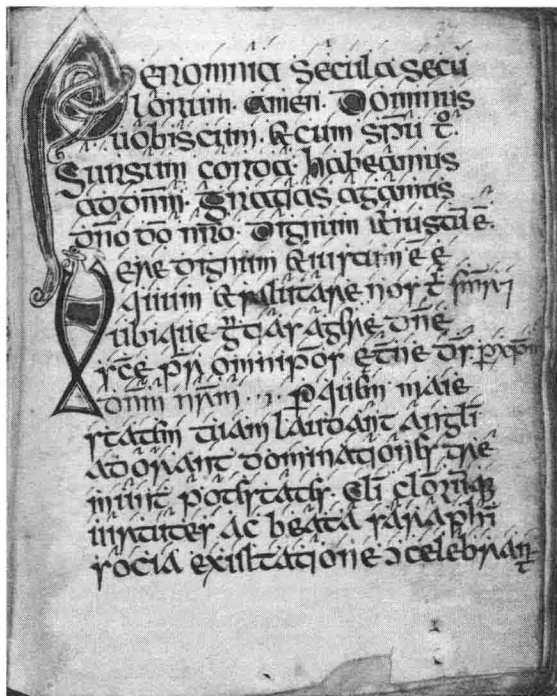 Per omnia secula secu
lorum. amen. Dominus
uobiscum. & cum spū t̊.
Sursum corda habeamus
ad dnm̄. Gratias agamus
dn̄o dō nr̄o. Dignum & iustū ē.
Uere dignum & iustum ē ę
quum & salutare nos t̄ semꝑ ⁊
ubique gr̄as aghe dn̄e
sc̄e pr̄ omnipōs etn̄e ds̄. ꝑ xp̄m
dnm̄ nrm̄ ⁖ ꝑ quem maie
statem tuam laudant angli
adorant dominationes tre
munt potestates. Cli clorūq;
uirtutes ac beata saraphin
socia exultatione ɔcelebrant